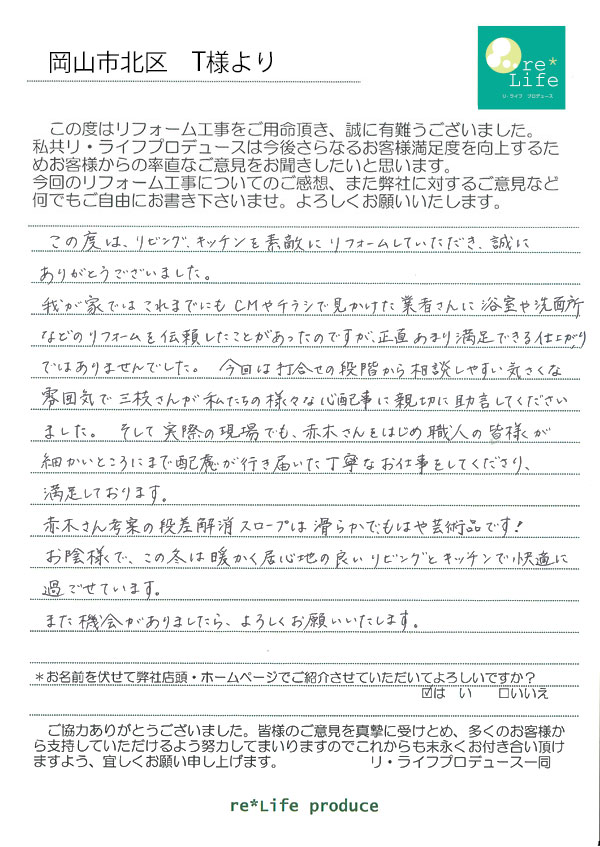 岡山市北区　T様より
re*
Life
リ・ライフ　プロデュース
この度はリフォーム工事をご用命頂き、誠に有難うございました。
私共リ・ライフプロデュースは今後さらなるお客様満足度を向上するた
めお客様からの率直なご意見をお聞きしたいと思います。
今回のリフォーム工事についてのご感想、また弊社に対するご意見など
何でもご自由にお書き下さいませ。よろしくお願いいたします。
この度は、リビング、キッチンを素敵にリフォームしていただき、誠に
ありがとうございました。
我が家ではこれまでにもCMやチラシで見かけた業者さんに浴室や洗面所
などのリフォームを伝頼したことがあったのですが、正直あまり満足できる仕上がり
ではありませんでした。　今回は打合せの段階から相談しやすい気さくな
雰囲気で三枝さんが私たちの様々な心配事に親切に助言してください
ました。　そして実際の現場でも、赤木さんをはじめ職人の皆様が
細かいところにまで配慮が行き届いた丁寧なお仕事をしてくださり、
満足しております。
赤木さん考案の段差解消スロープは滑らかでもはや芸術品です!
お陰様で、この冬は暖かく居心地の良いリビングとキッチンで快適に
過ごせています。
また機会がありましたら、よろしくお願いいたします。
*お名前を伏せて弊社店頭・ホームページでご紹介させていただいてよろしいですか？
☑は　い　　□いいえ
ご協力ありがとうございました。皆様のご意見を真摯に受けとめ、多くのお客様か
ら支持していただけるよう努力してまいりますのでこれからも末永くお付き合い頂け
ますよう、宜しくお願い申し上げます。　　　　　リ・ライフプロデュース一同
re*Life produce